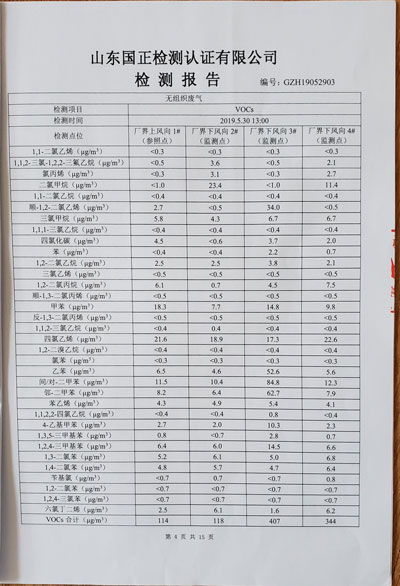 山东国正检测认证有限公司
检 测 报 告 编号：GZH19052903
无组织废气
检测项目 VOCs
检测时间 2019.5.30 13:00
检测点位 厂界上风向 1#（参照点） 厂界下风向 2#（监测点） 厂界下风向 3#（监测点） 厂界下风向 4#（监测点）
1,1-二氯乙烯（μg/m³） <0.3 <0.3 <0.3 <0.3
1,1,2-三氯-1,2,2-三氟乙烷（μg/m³） <0.5 3.6 <0.5 2.1
氯丙烯（μg/m³） <0.3 3.1 <0.3 2.7
二氯甲烷（μg/m³） <1.0 23.4 <1.0 11.4
1,1-二氯乙烷（μg/m³） <0.4 <0.4 <0.4 <0.4
顺-1,2-二氯乙烯（μg/m³） 2.7 <0.5 34.0 <0.5
三氯甲烷（μg/m³） 5.8 4.3 6.7 6.7
1,1,1-三氯乙烷（μg/m³） <0.4 <0.4 <0.4 <0.4
四氯化碳（μg/m³） 4.5 <0.6 3.7 2.0
苯（μg/m³） <0.4 <0.4 2.2 0.7
1,2-二氯乙烷（μg/m³） 2.5 2.5 3.8 2.1
三氯乙烯（μg/m³） <0.5 <0.5 <0.5 <0.5
1,2-二氯丙烷（μg/m³） 6.1 0.7 4.5 7.5
顺-1,3-二氯丙烯（μg/m³） <0.5 <0.5 <0.5 <0.5
甲苯（μg/m³） 18.3 7.7 14.8 9.8
反-1,3-二氯丙烯（μg/m³） <0.5 <0.5 <0.5 <0.5
1,1,2-三氯乙烷（μg/m³） <0.4 0.4 <0.4 <0.4
四氯乙烯（μg/m³） 21.6 18.9 17.3 22.6
1,2-二溴乙烷（μg/m³） <0.4 <0.4 <0.4 <0.4
氯苯（μg/m³） <0.3 <0.3 <0.3 <0.3
乙苯（μg/m³） 6.5 4.6 52.6 5.6
间/对-二甲苯（μg/m³） 11.5 10.4 84.8 12.3
邻-二甲苯（μg/m³） 8.2 6.4 62.7 7.9
苯乙烯（μg/m³） 4.3 4.9 5.4 4.1
1,1,2,2-四氯乙烷（μg/m³） <0.4 <0.4 0.8 <0.4
4-乙基甲苯（μg/m³） 2.7 2.0 10.3 2.3
1,3,5-三甲基苯（μg/m³） 0.8 <0.7 2.8 0.7
1,2,4-三甲基苯（μg/m³） 6.4 6.0 14.5 6.6
1,3-二氯苯（μg/m³） 5.2 6.1 5.0 6.8
1,4-二氯苯（μg/m³） 4.8 5.7 4.7 6.4
苄基氯（μg/m³） <0.7 <0.7 <0.7 0.8
1,2-二氯苯（μg/m³） <0.7 <0.7 <0.7 <0.7
1,2,4-三氯苯（μg/m³） <0.7 <0.7 <0.7 <0.7
六氯丁二烯（μg/m³） 2.5 6.1 1.6 6.2
VOCs 合计（μg/m³） 114 118 407 344
第 4 页 共 15 页